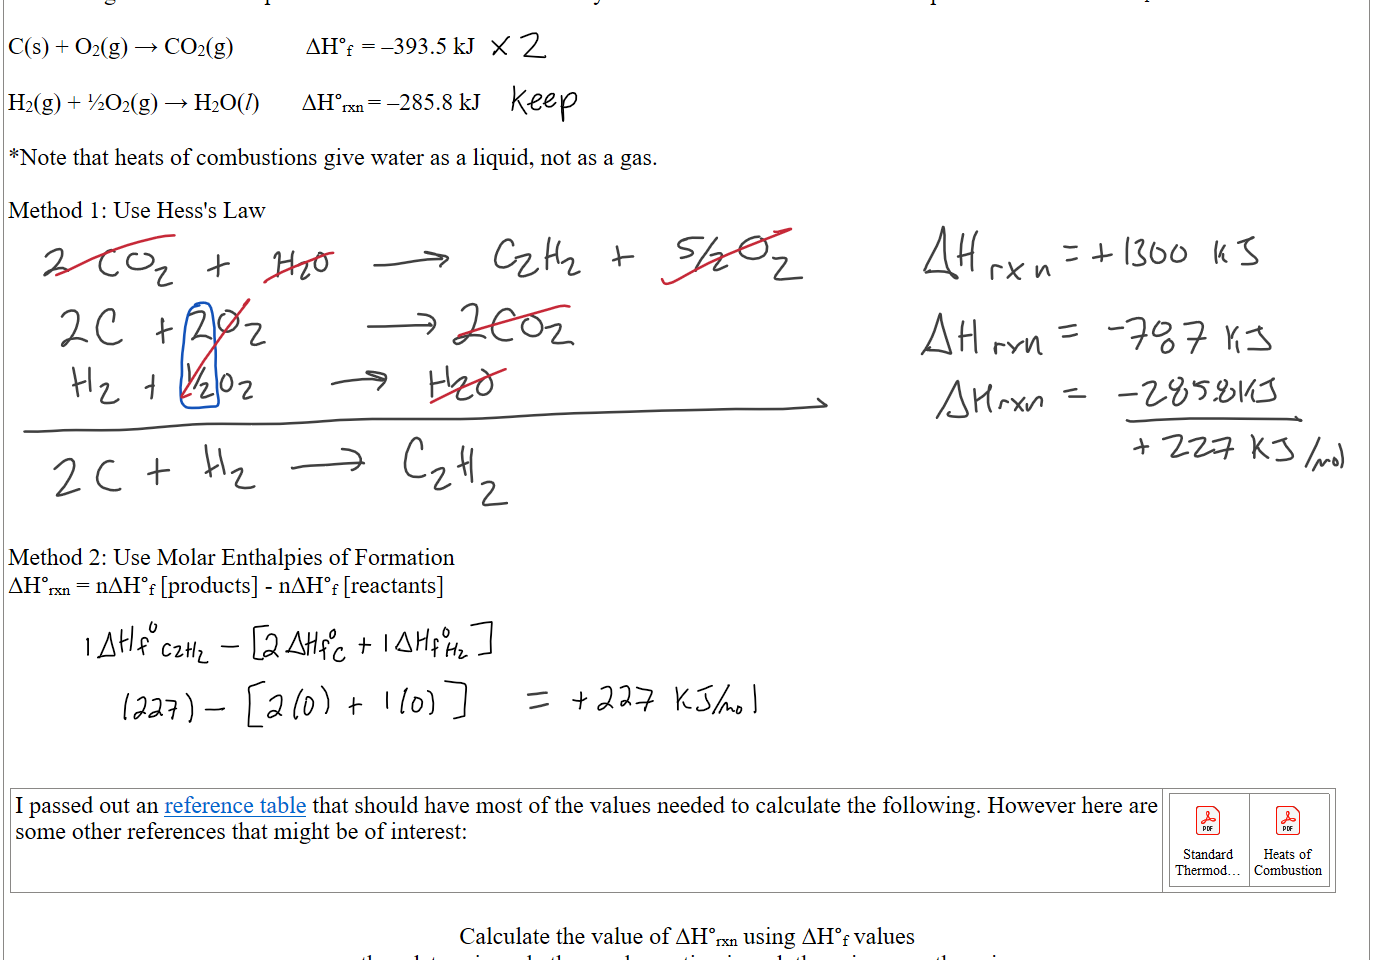 C(s) + O₂(g) → CO₂(g) ΔH°f = –393.5 kJ × 2
H₂(g) + ½O₂(g) → H₂O(l) ΔH°rxn = –285.8 kJ Keep
*Note that heats of combustions give water as a liquid, not as a gas.
Method 1: Use Hess's Law
2 CO₂ + H₂O → C₂H₂ + 5/2 O₂ ΔHrxn = +1300 kJ
2C + 2O₂ → 2CO₂ ΔHrxn = -787 KJ
H₂ + ½O₂ → H₂O ΔHrxn = -285.8KJ
2C + H₂ → C₂H₂ + 227 KJ/mol
Method 2: Use Molar Enthalpies of Formation
ΔH°rxn = nΔH°f [products] - nΔH°f [reactants]
1ΔHf° C₂H₂ – [2 ΔHf°C + 1ΔHf°H₂]
(227) – [2(0) + 1(0)] = +227 KJ/mol
I passed out an reference table that should have most of the values needed to calculate the following. However here are
some other references that might be of interest:
PDF PDF
Standard Heats of
Thermod... Combustion
Calculate the value of ΔH°rxn using ΔH°f values